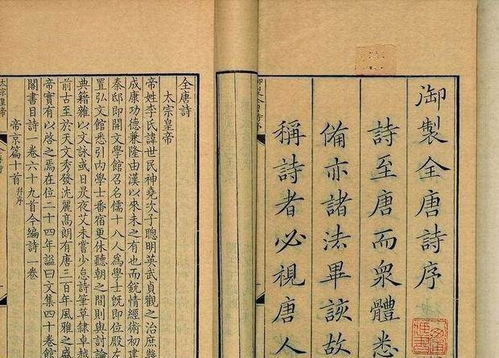 御製全唐詩序
詩至唐而衆體悉
備亦諸法畢該故
稱詩者必視唐人
全唐詩
太宗皇帝
帝姓李氏諱世民神堯次子聰明英武貞觀之治庶幾
成康功德兼隆由漢以來未之有也而銳情經術初建
秦邸即開文學館召名儒十八人為學士既即位殿左
置弘文館悉引內學士番宿更休聽朝之間則與討論
典籍雜以文詠或日昃夜艾未嘗少怠詩筆草隸卓越
前古至於天文秀發沈麗高朗有唐三百年風雅之盛
帝實有以啟之焉在位二十四年諡曰文集四十卷館
閣書目詩一卷六十九首今編詩一卷
帝京篇十首并序
太宗皇帝